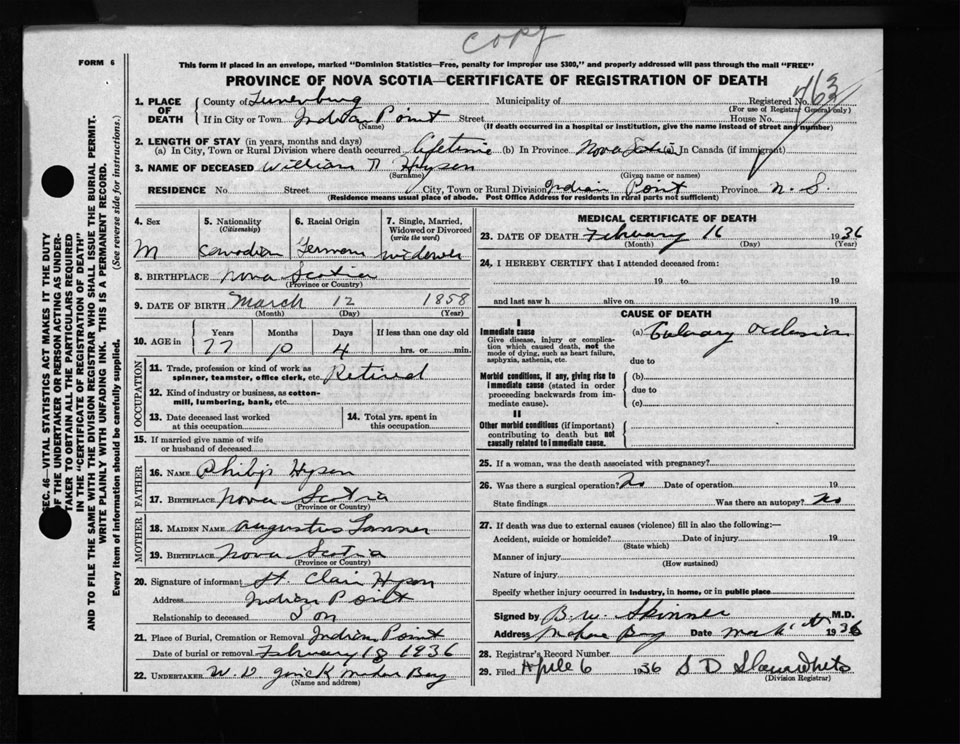 copy
FORM 6
This form if placed in an envelope, marked "Dominion Statistics—Free, penalty for improper use $300," and properly addressed will pass through the mail "FREE"
PROVINCE OF NOVA SCOTIA—CERTIFICATE OF REGISTRATION OF DEATH
1. PLACE OF DEATH County of Lunenburg Municipality of Registered No. 463
(For use of Registrar General only)
If in City or Town Indian Point Street House No.
(Name) (If death occurred in a hospital or institution, give the name instead of street and number)
2. LENGTH OF STAY (in years, months and days)
(a) In City, Town or Rural Division where death occurred Lifetime (b) In Province Nova Scotia In Canada (if immigrant)
3. NAME OF DECEASED William N. Hyson
(Surname) (Given name or names)
RESIDENCE No Street City, Town or Rural Division Indian Point Province N. S.
(Residence means usual place of abode. Post Office Address for residents in rural parts not sufficient)
4. Sex 5. Nationality 6. Racial Origin 7. Single, Married, Widowed or Divorced
(Citizenship) (write the word)
M Canadian German widower
8. BIRTHPLACE Nova Scotia
(Province or Country)
9. DATE OF BIRTH March 12 1858
(Month) (Day) (Year)
10. AGE in Years Months Days If less than one day old
77 10 4 hrs. or min.
OCCUPATION
11. Trade, profession or kind of work as spinner, teamster, office clerk, etc. Retired
12. Kind of industry or business, as cotton-mill, lumbering, bank, etc.
13. Date deceased last worked at this occupation
14. Total yrs. spent in this occupation
15. If married give name of wife or husband of deceased
FATHER
16. NAME Philip Hyson
17. BIRTHPLACE Nova Scotia
(Province or Country)
MOTHER
18. MAIDEN NAME Augustus Tanner
19. BIRTHPLACE Nova Scotia
(Province or Country)
20. Signature of informant St. Clair Hyson
Address Indian Point
Relationship to deceased Son
21. Place of Burial, Cremation or Removal Indian Point
Date of burial or removal February 18 1836
22. UNDERTAKER W. D. Mahone Bay
(Name and address)
MEDICAL CERTIFICATE OF DEATH
23. DATE OF DEATH February 16 1936
(Month) (Day) (Year)
24. I HEREBY CERTIFY that I attended deceased from:
19 to 19
and last saw h alive on 19
CAUSE OF DEATH
I
Immediate cause (a) occlusion
Give disease, injury or complication which caused death, not the mode of dying, such as heart failure, asphyxia, asthenia, etc.
due to
Morbid conditions, if any, giving rise to immediate cause (stated in order proceeding backwards from immediate cause). (b)
due to
(c)
II
Other morbid conditions (if important) contributing to death but not causally related to immediate cause.
25. If a woman, was the death associated with pregnancy?
26. Was there a surgical operation? No Date of operation 19
State findings Was there an autopsy? No
27. If death was due to external causes (violence) fill in also the following:—
Accident, suicide or homicide? Date of injury 19
(State which)
Manner of injury
(How sustained)
Nature of injury
Specify whether injury occurred in industry, in home, or in public place
Signed by B. W. Skinner M.D.
Address Mahone Bay Date 1936
28. Registrar's Record Number
29. Filed April 6 1936 S D
(Division Registrar)
SEC. 46—VITAL STATISTICS ACT MAKES IT THE DUTY
OF THE UNDERTAKER OR PERSON ACTING AS UNDER-
TAKER TO OBTAIN ALL THE PARTICULARS REQUIRED
IN THE "CERTIFICATE OF REGISTRATION OF DEATH"
AND TO FILE THE SAME WITH THE DIVISION REGISTRAR WHO SHALL ISSUE THE BURIAL PERMIT.
WRITE PLAINLY WITH UNFADING INK. THIS IS A PERMANENT RECORD.
Every item of information should be carefully supplied. (See reverse side for instructions.)